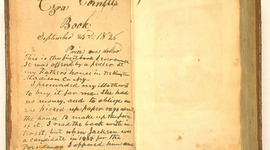 Ezra Cornell's
Book
September 24th 1826
Price one dollar
This is the first book I ever owned
It was offered by a pedler at
my fathers house in DeRuyter
Madison County.
I persuaded my Mother
to buy it for me. She had
no money, and to oblige me
she picked up paper rags about
the house to make up the price
of it. I read the book with in-
terest, but when Jackson was
a candidate in 1828 for the
Presidency I opposed him and